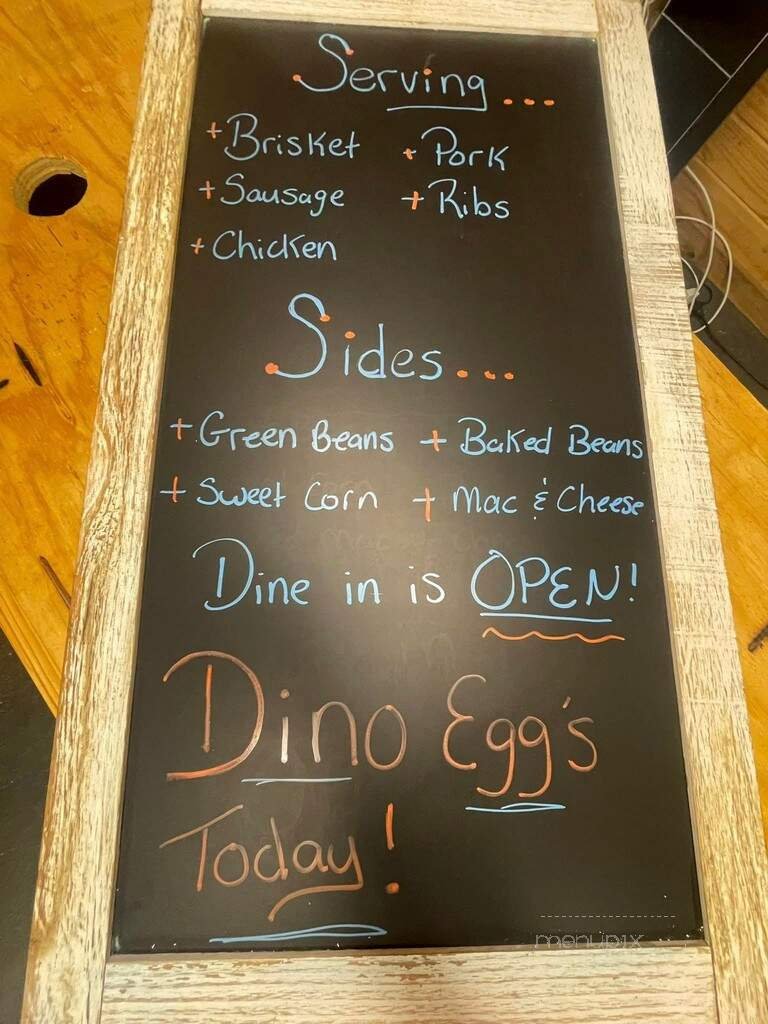 Serving...
+ Brisket + Pork
+ Sausage + Ribs
+ Chicken
Sides...
+ Green Beans + Baked Beans
+ Sweet Corn + Mac & Cheese
Dine in is OPEN!
Dino Egg's
Today!
menupix